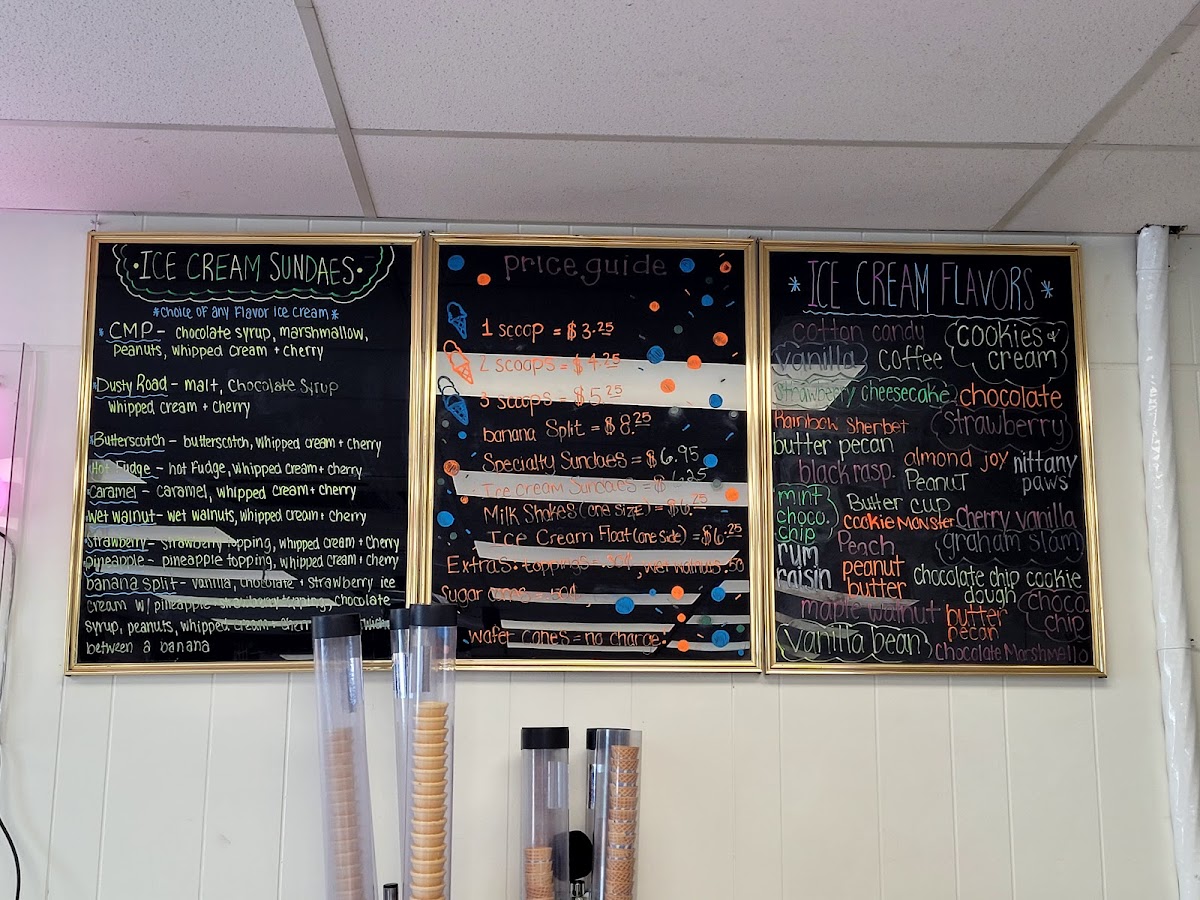 ICE CREAM SUNDAES
*Choice of any Flavor Ice Cream*
CMP - chocolate syrup, marshmallow,
Peanuts, whipped cream + cherry
Dusty Road - malt, Chocolate Syrup
whipped cream + cherry
Butterscotch - butterscotch, whipped cream + cherry
Hot Fudge - hot Fudge, whipped cream + cherry
Caramel - caramel, whipped cream + cherry
Wet walnut - wet walnuts, whipped cream + cherry
Strawberry - strawberry topping, whipped cream + Cherry
pineapple - pineapple topping, whipped cream + cherry
banana split - vanilla, chocolate + strawberry ice
cream w/ pineapple strawberry topping, chocolate
syrup, peanuts, whipped cream + cherry
between a banana
price guide
1 scoop = $3.25
2 scoops = $4.25
3 scoops = $5.25
banana Split = $8.25
Specialty Sundaes = $6.95
Ice cream Sundaes = $6.25
Milk Shakes (one size) = $6.25
Ice Cream Float (one side) = $6.25
Extras: toppings = 50¢, wet walnuts .50
Sugar cones = 50¢
wafer cones = no charge
*ICE CREAM FLAVORS*
cotton candy
cookies &
cream
vanilla
coffee
Strawberry cheesecake
chocolate
Rainbow Sherbet
Strawberry
butter pecan
almond joy
nittany
paws
black rasp.
Peanut
Butter cup
mint
choco.
chip
cookie Monster
cherry vanilla
graham slam
Peach
rum
raisin
peanut
butter
chocolate chip cookie
dough
choco.
chip
maple walnut
butter
pecan
vanilla bean
Chocolate Marshmello